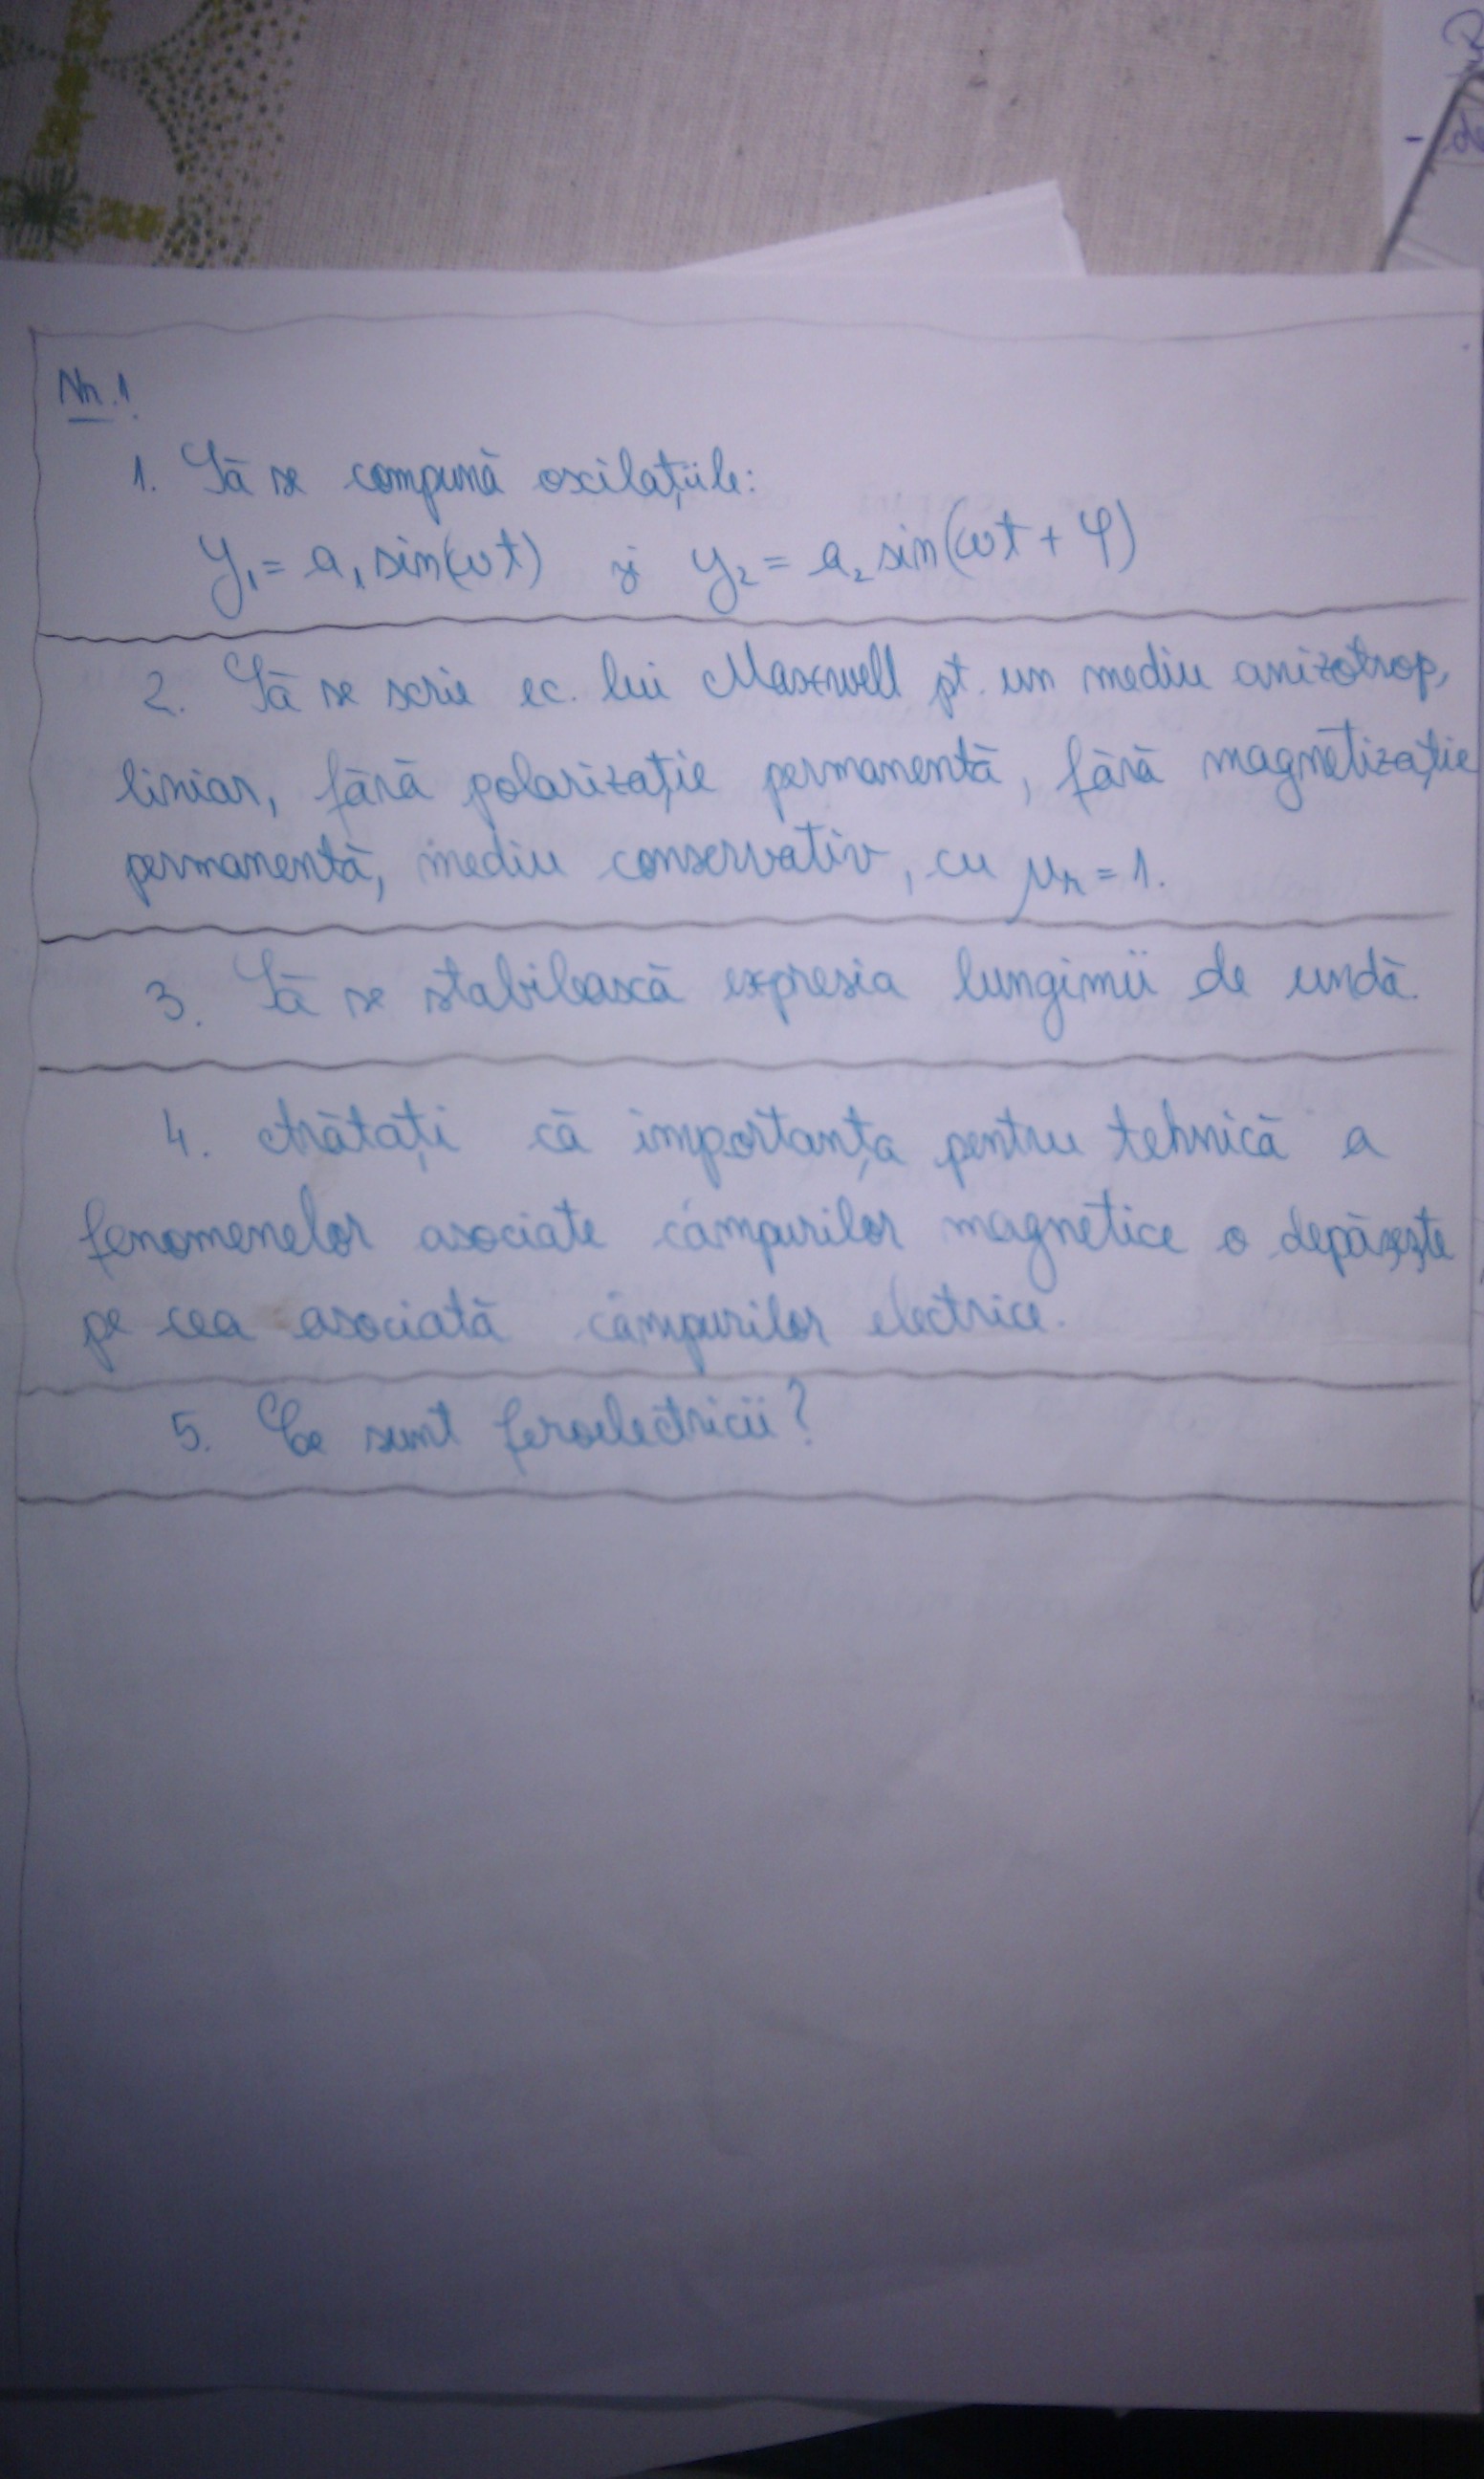 Nr. 1
1. Să se compună oscilațiile:
y₁ = a₁ sin(ωt) și y₂ = a₂ sin(ωt + φ)
2. Să se scrie ec. lui Maxwell pt. un mediu anizotrop,
liniar, fără polarizație permanentă, fără magnetizație
permanentă, mediu conservativ, cu μr = 1.
3. Să se stabilească expresia lungimii de undă.
4. Arătați că importanța pentru tehnică a
fenomenelor asociate câmpurilor magnetice o depășește
pe cea asociată câmpurilor electrice.
5. Ce sunt feroelectricii?